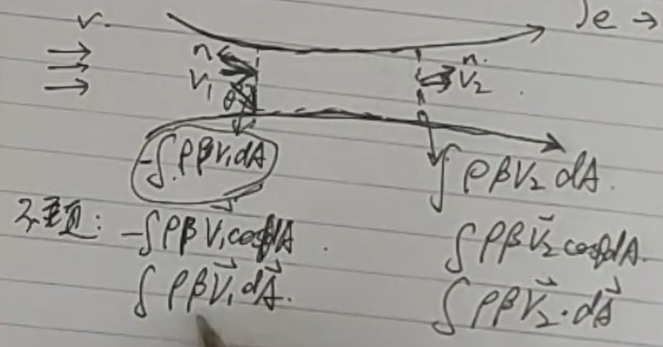 V. ∫e →
n n
V₁ θ V₂
-∫ρβV₁dA ∫ρβV₂dA.
-∫ρβV⃗₁cosθdA. ∫ρβV⃗₂cosθdA.
∫ρβV⃗₁dA⃗. ∫ρβV⃗₂·dA⃗